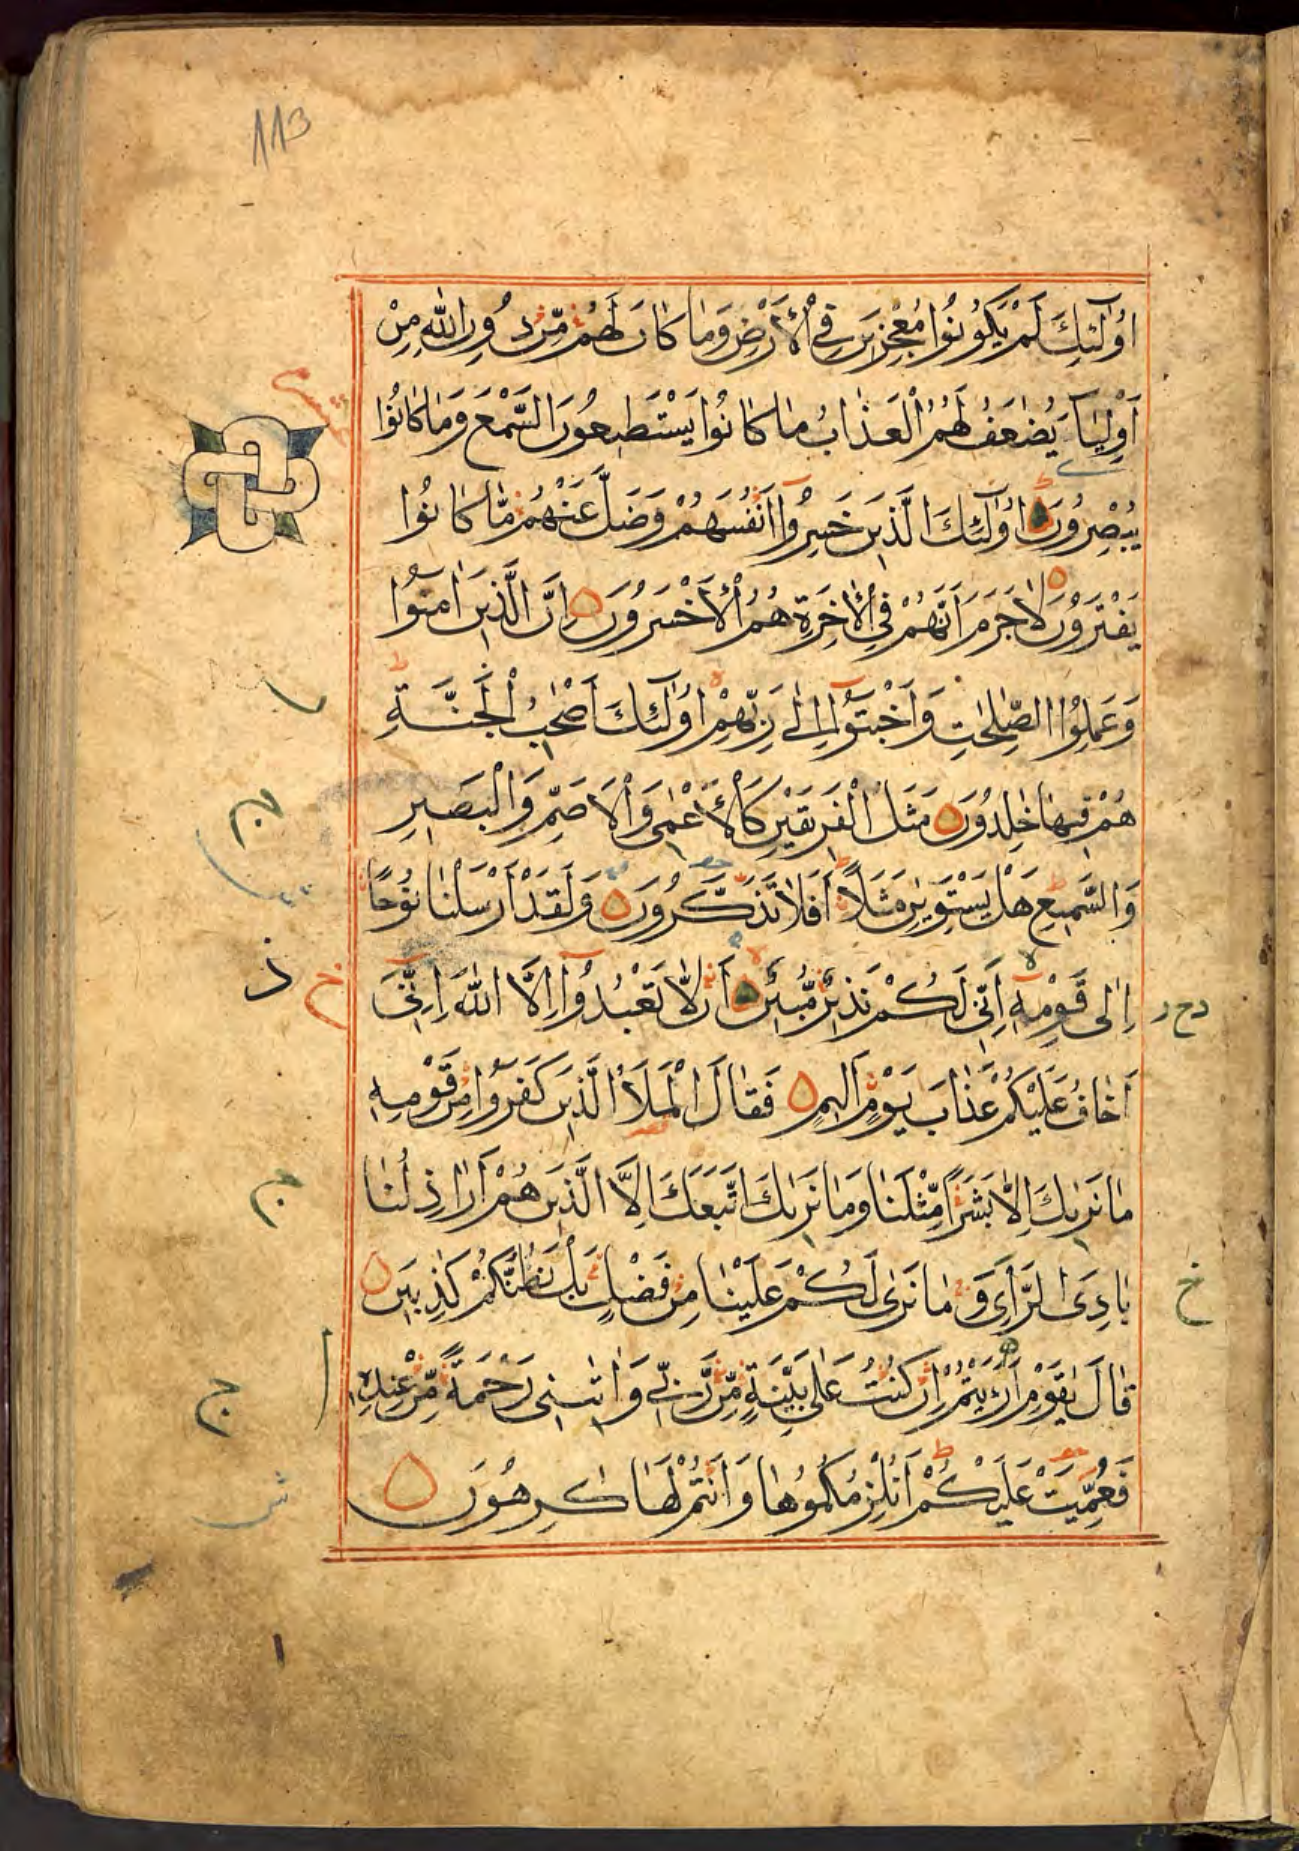 113
اُولٰٓئِكَ لَمْ يَكُونُوا مُعْجِزِينَ فِي الْاَرْضِ وَمَا كَانَ لَهُمْ مِّنْ دُونِ اللّٰهِ مِنْ
اَوْلِيَآءَ يُضٰعَفُ لَهُمُ الْعَذَابُ مَا كَانُوا يَسْتَطِيعُونَ السَّمْعَ وَمَا كَانُوا
يُبْصِرُونَ اُولٰٓئِكَ الَّذِينَ خَسِرُوٓا اَنْفُسَهُمْ وَضَلَّ عَنْهُمْ مَّا كَانُوا
يَفْتَرُونَ لَا جَرَمَ اَنَّهُمْ فِي الْاٰخِرَةِ هُمُ الْاَخْسَرُونَ اِنَّ الَّذِينَ اٰمَنُوا
وَعَمِلُوا الصّٰلِحٰتِ وَاَخْبَتُوٓا اِلٰى رَبِّهِمْ اُولٰٓئِكَ اَصْحٰبُ الْجَنَّةِ
هُمْ فِيهَا خٰلِدُونَ مَثَلُ الْفَرِيقَيْنِ كَالْاَعْمٰى وَالْاَصَمِّ وَالْبَصِيرِ
وَالسَّمِيعِ هَلْ يَسْتَوِيٰنِ مَثَلًا اَفَلَا تَذَكَّرُونَ وَلَقَدْ اَرْسَلْنَا نُوحًا
اِلٰى قَوْمِهٖٓ اِنّٖى لَكُمْ نَذِيرٌ مُّبِينٌ اَنْ لَّا تَعْبُدُوٓا اِلَّا اللّٰهَ اِنِّيٓ
اَخَافُ عَلَيْكُمْ عَذَابَ يَوْمٍ اَلِيمٍ فَقَالَ الْمَلَاُ الَّذِينَ كَفَرُوا مِنْ قَوْمِهٖ
مَا نَرٰىكَ اِلَّا بَشَرًا مِّثْلَنَا وَمَا نَرٰىكَ اتَّبَعَكَ اِلَّا الَّذِينَ هُمْ اَرَاذِلُنَا
بَادِيَ الرَّاْيِ وَمَا نَرٰى لَكُمْ عَلَيْنَا مِنْ فَضْلٍ بَلْ نَظُنُّكُمْ كٰذِبِينَ
قَالَ يٰقَوْمِ اَرَءَيْتُمْ اِنْ كُنْتُ عَلٰى بَيِّنَةٍ مِّنْ رَّبِّي وَاٰتٰىنِي رَحْمَةً مِّنْ عِنْدِهٖ
فَعُمِّيَتْ عَلَيْكُمْ اَنُلْزِمُكُمُوهَا وَاَنْتُمْ لَهَا كٰرِهُونَ